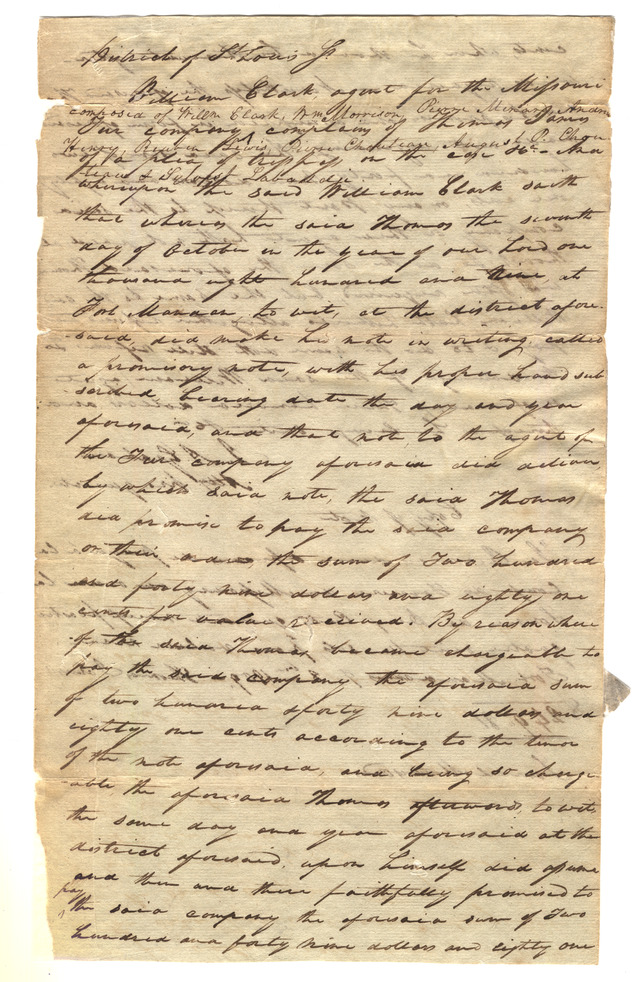 District of St. Louis Js.
William Clark, agent for the Missouri
composed of Willm Clark, Wm Morrison, Pierre Menard, Andw
Fur company complains of Thomas James
Henry, Reuben Lewis, Pierre Chouteau, August P. Chou
of a plea of trespass on the case &c. And
teau & Sylvest Labaddie
whereupon the said William Clark saith
that whereas the said Thomas the seventh
day of October in the year of our Lord one
thousand eight hundred and Nine, at
Fort Mandan, to wit, at the district afore-
said, did make his note in writing, called
a promissory note, with his proper hand sub
scribed, bearing date the day and year
aforesaid, and that note to the agent of
the Fur company aforesaid did deliver
by which said note, the said Thomas
did promise to pay the said company
or their order the sum of Two hundred
and forty nine dollars and eighty one
cents for value received. By reason where
of the said Thomas became chargeable to
pay the said company the aforesaid sum
of two hundred & forty nine dollars and
eighty one cents according to the tenor
of the note aforesaid, and being so charge
able the aforesaid Thomas afterwards, to wit,
the same day and year aforesaid at the
district aforesaid, upon himself did assume
and then and there faithfully promised to
pay
the said company the aforesaid sum of Two
hundred and forty nine dollars and eighty one